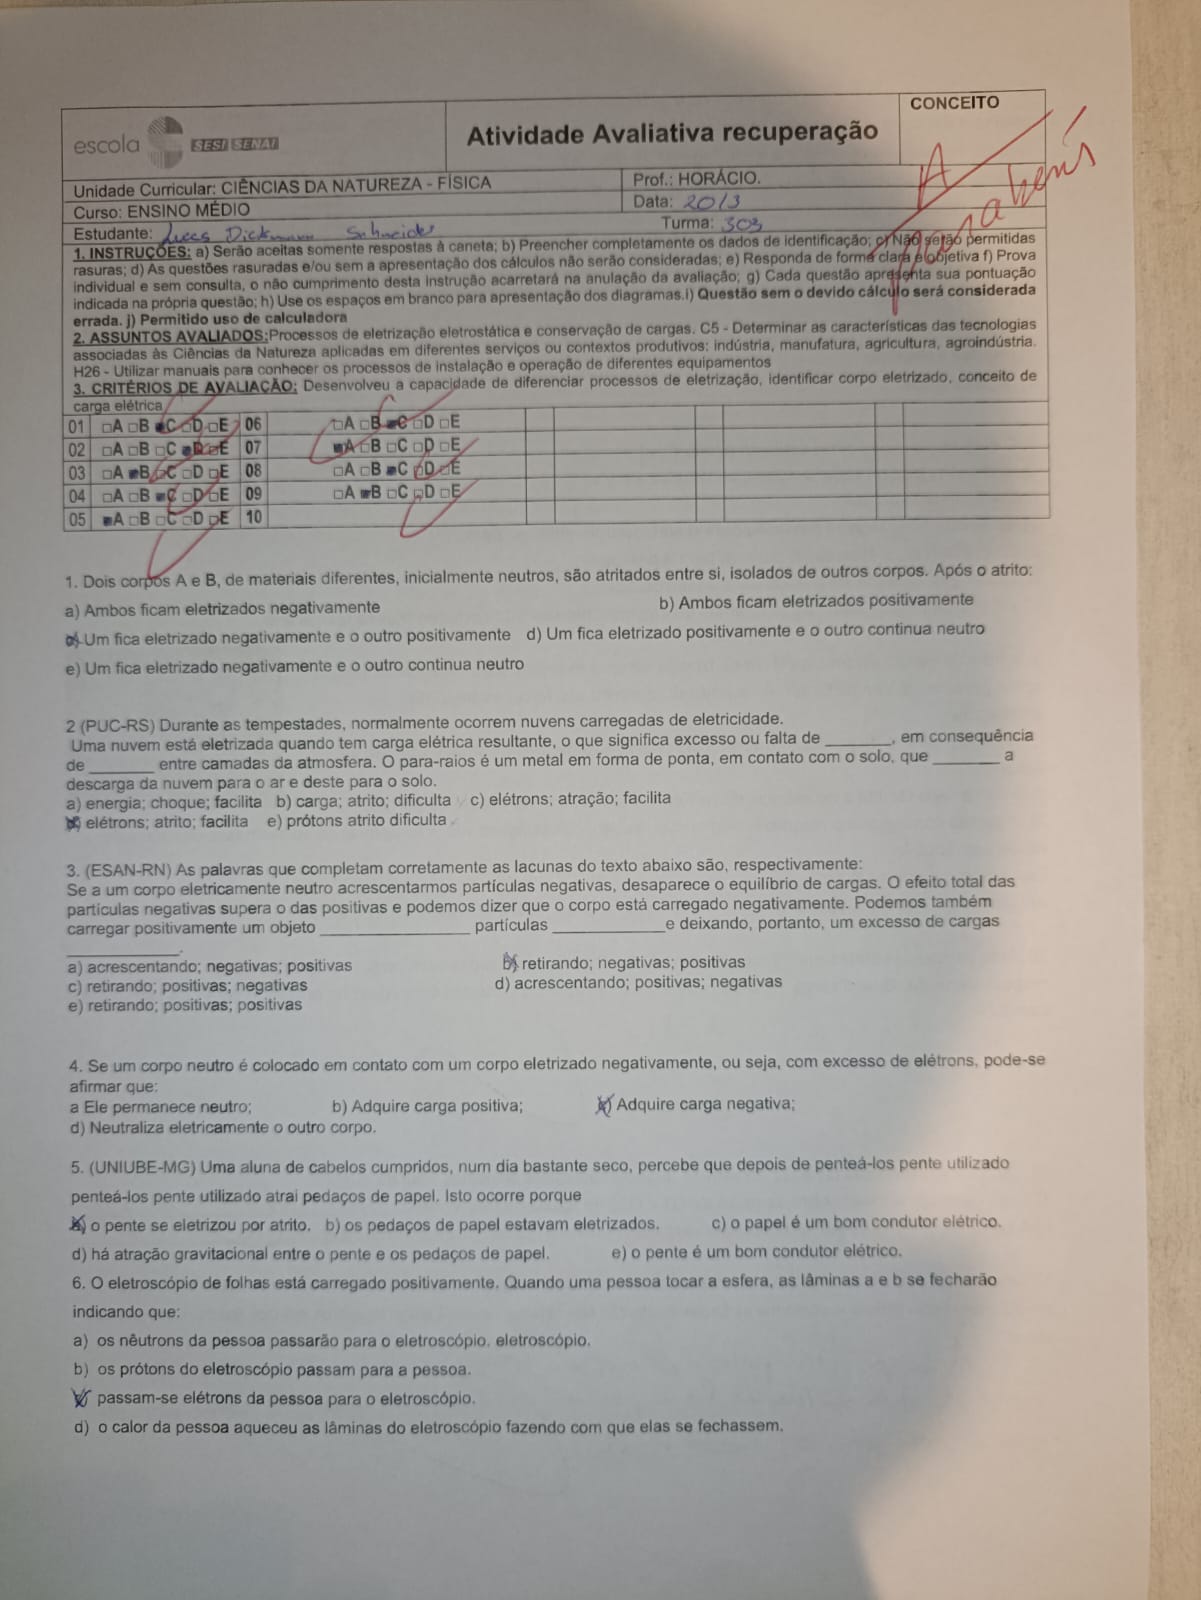 escola SESI SENAI
Atividade Avaliativa recuperação
CONCEITO
A
parabéns
Unidade Curricular: CIÊNCIAS DA NATUREZA - FÍSICA
Prof.: HORÁCIO.
Curso: ENSINO MÉDIO
Data: 20/3
Estudante: Lucas Dickmann Schneider
Turma: 303
1. INSTRUÇÕES: a) Serão aceitas somente respostas à caneta; b) Preencher completamente os dados de identificação; c) Não serão permitidas
rasuras; d) As questões rasuradas e/ou sem a apresentação dos cálculos não serão consideradas; e) Responda de forma clara e objetiva f) Prova
individual e sem consulta, o não cumprimento desta instrução acarretará na anulação da avaliação; g) Cada questão apresenta sua pontuação
indicada na própria questão; h) Use os espaços em branco para apresentação dos diagramas.i) Questão sem o devido cálculo será considerada
errada. j) Permitido uso de calculadora
2. ASSUNTOS AVALIADOS:Processos de eletrização eletrostática e conservação de cargas. C5 - Determinar as características das tecnologias
associadas às Ciências da Natureza aplicadas em diferentes serviços ou contextos produtivos: indústria, manufatura, agricultura, agroindústria.
H26 - Utilizar manuais para conhecer os processos de instalação e operação de diferentes equipamentos
3. CRITÉRIOS DE AVALIAÇÃO: Desenvolveu a capacidade de diferenciar processos de eletrização, identificar corpo eletrizado, conceito de
carga elétrica
01 □A □B ■C □D □E 06 □A □B ■C □D □E
02 □A □B □C ■D □E 07 ■A □B □C □D □E
03 □A ■B □C □D □E 08 □A □B ■C □D □E
04 □A □B ■C □D □E 09 □A ■B □C □D □E
05 ■A □B □C □D □E 10
1. Dois corpos A e B, de materiais diferentes, inicialmente neutros, são atritados entre si, isolados de outros corpos. Após o atrito:
a) Ambos ficam eletrizados negativamente b) Ambos ficam eletrizados positivamente
c) Um fica eletrizado negativamente e o outro positivamente d) Um fica eletrizado positivamente e o outro continua neutro
e) Um fica eletrizado negativamente e o outro continua neutro
2 (PUC-RS) Durante as tempestades, normalmente ocorrem nuvens carregadas de eletricidade.
Uma nuvem está eletrizada quando tem carga elétrica resultante, o que significa excesso ou falta de ________, em consequência
de ________ entre camadas da atmosfera. O para-raios é um metal em forma de ponta, em contato com o solo, que ________ a
descarga da nuvem para o ar e deste para o solo.
a) energia; choque; facilita b) carga; atrito; dificulta c) elétrons; atração; facilita
d) elétrons; atrito; facilita e) prótons atrito dificulta
3. (ESAN-RN) As palavras que completam corretamente as lacunas do texto abaixo são, respectivamente:
Se a um corpo eletricamente neutro acrescentarmos partículas negativas, desaparece o equilíbrio de cargas. O efeito total das
partículas negativas supera o das positivas e podemos dizer que o corpo está carregado negativamente. Podemos também
carregar positivamente um objeto ________________ partículas ____________e deixando, portanto, um excesso de cargas
____________.
a) acrescentando; negativas; positivas b) retirando; negativas; positivas
c) retirando; positivas; negativas d) acrescentando; positivas; negativas
e) retirando; positivas; positivas
4. Se um corpo neutro é colocado em contato com um corpo eletrizado negativamente, ou seja, com excesso de elétrons, pode-se
afirmar que:
a Ele permanece neutro; b) Adquire carga positiva; c) Adquire carga negativa;
d) Neutraliza eletricamente o outro corpo.
5. (UNIUBE-MG) Uma aluna de cabelos cumpridos, num dia bastante seco, percebe que depois de penteá-los pente utilizado
penteá-los pente utilizado atrai pedaços de papel. Isto ocorre porque
a) o pente se eletrizou por atrito. b) os pedaços de papel estavam eletrizados. c) o papel é um bom condutor elétrico.
d) há atração gravitacional entre o pente e os pedaços de papel. e) o pente é um bom condutor elétrico.
6. O eletroscópio de folhas está carregado positivamente. Quando uma pessoa tocar a esfera, as lâminas a e b se fecharão
indicando que:
a) os nêutrons da pessoa passarão para o eletroscópio. eletroscópio.
b) os prótons do eletroscópio passam para a pessoa.
c) passam-se elétrons da pessoa para o eletroscópio.
d) o calor da pessoa aqueceu as lâminas do eletroscópio fazendo com que elas se fechassem.